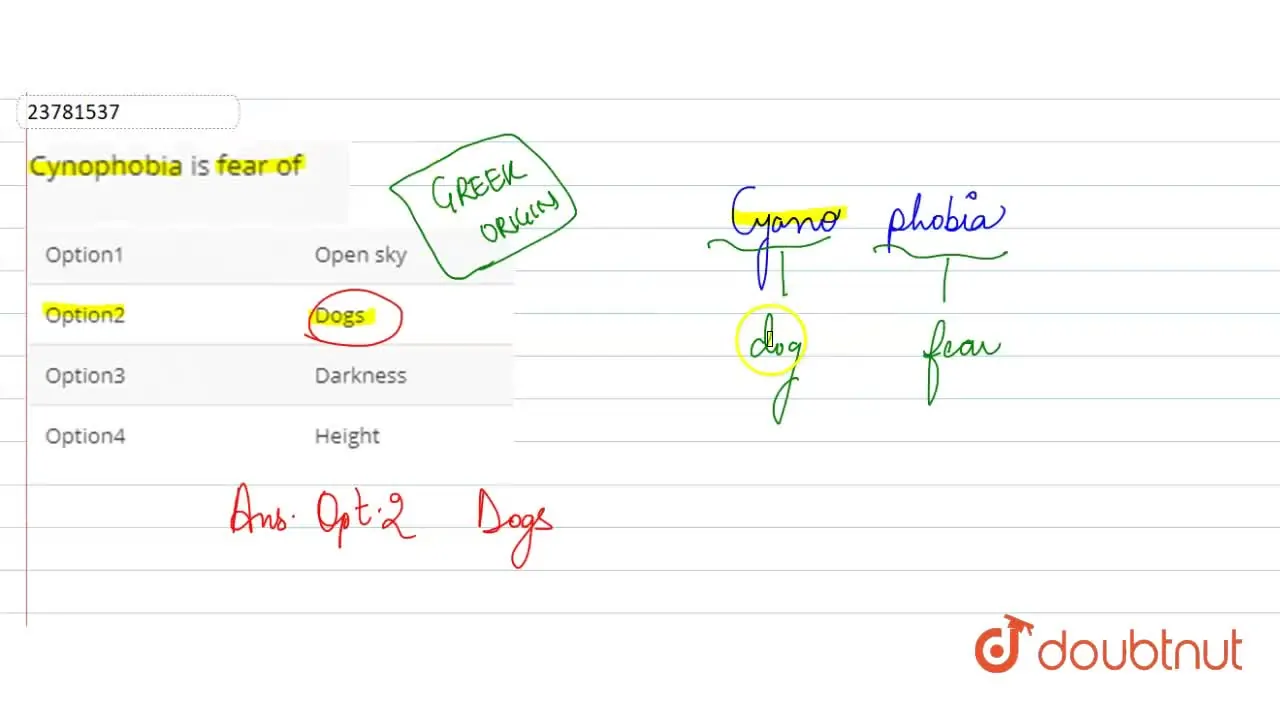 23781537
Cynophobia is fear of
GREEK
ORIGINS
Cyano phobia
Option1 Open sky
Option2 Dogs
dog fear
Option3 Darkness
Option4 Height
Ans. Opt. 2 Dogs
doubtnut